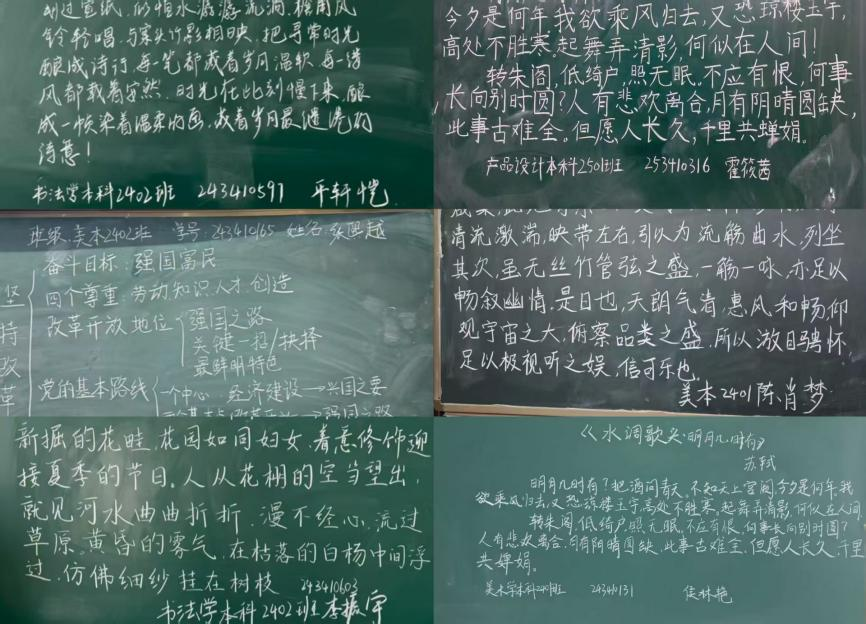 划过宣纸，似怕水潺潺流淌，檐角风
铃轻唱，与案头竹影相映，把寻常时光
酿成诗行，每一笔都藏着岁月温软，每一缕
风都载着安然，时光在此刻慢下来，酿
成一帧染着温柔的画，藏着岁月最缱绻的
诗意！
书法学本科2402班 243410597 平轩恺
今夕是何年我欲乘风归去，又恐琼楼玉宇，
高处不胜寒。起舞弄清影，何似在人间！
转朱阁，低绮户，照无眠。不应有恨，何事
长向别时圆？人有悲欢离合，月有阴晴圆缺，
此事古难全。但愿人长久，千里共蝉娟。
产品设计本科2501班 253410316 霍筱茜
班级：美本2402班 学号：243410165 姓名：张照越
奋斗目标：强国富民
四个尊重：劳动知识、人才、创造
改革开放地位
强国之路
关键一招/抉择
最鲜明特色
坚持改革
党的基本路线
一个中心：经济建设→兴国之要
清流激湍，映带左右，引以为流觞曲水，列坐
其次，虽无丝竹管弦之盛，一觞一咏，亦足以
畅叙幽情。是日也，天朗气清，惠风和畅，仰
观宇宙之大，俯察品类之盛，所以游目骋怀，
足以极视听之娱，信可乐也。
美本2401陈肖梦
新掘的花畦，花园如同妇女，着意修饰迎
接夏季的节日。人从花棚的空当望出，
就见河水曲曲折折，漫不经心，流过
草原。黄昏的雾气，在枯落的白杨中间浮
过，仿佛细纱挂在树枝
243410603
书法学本科2402班李振宇
《水调歌头·明月几时有》
苏轼
明月几时有？把酒问青天。不知天上宫阙，今夕是何年。我
欲乘风归去，又恐琼楼玉宇，高处不胜寒。起舞弄清影，何似在人间
转朱阁，低绮户，照无眠。不应有恨，何事长向别时圆？
人有悲欢离合，月有阴晴圆缺，此事古难全。但愿人长久，千里
共婵娟。
美术学本科2401班 24340131 侯林艳